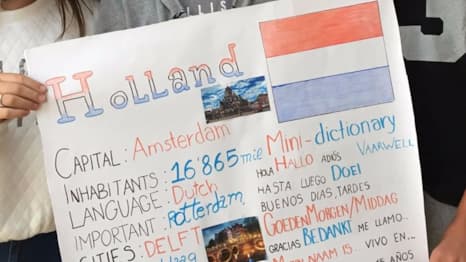 LLIS
Holland
CAPITAL: Amsterdam
INHABITANTS: 16'865 mile
LANGUAGE: Dutch
IMPORTANT: Rotterdam,
CITIES: DELFT
Haag
Mini-dictionary
HOLA HALLO ADIÓS VAARWELL
HASTA LUEGO DOEI
BUENOS DÍAS, TARDES
GOEDENMORGEN/MIDDAG
GRACIAS BEDANKT ME LLAMO..
NAAM IS... VIVO EN...
AÑOS